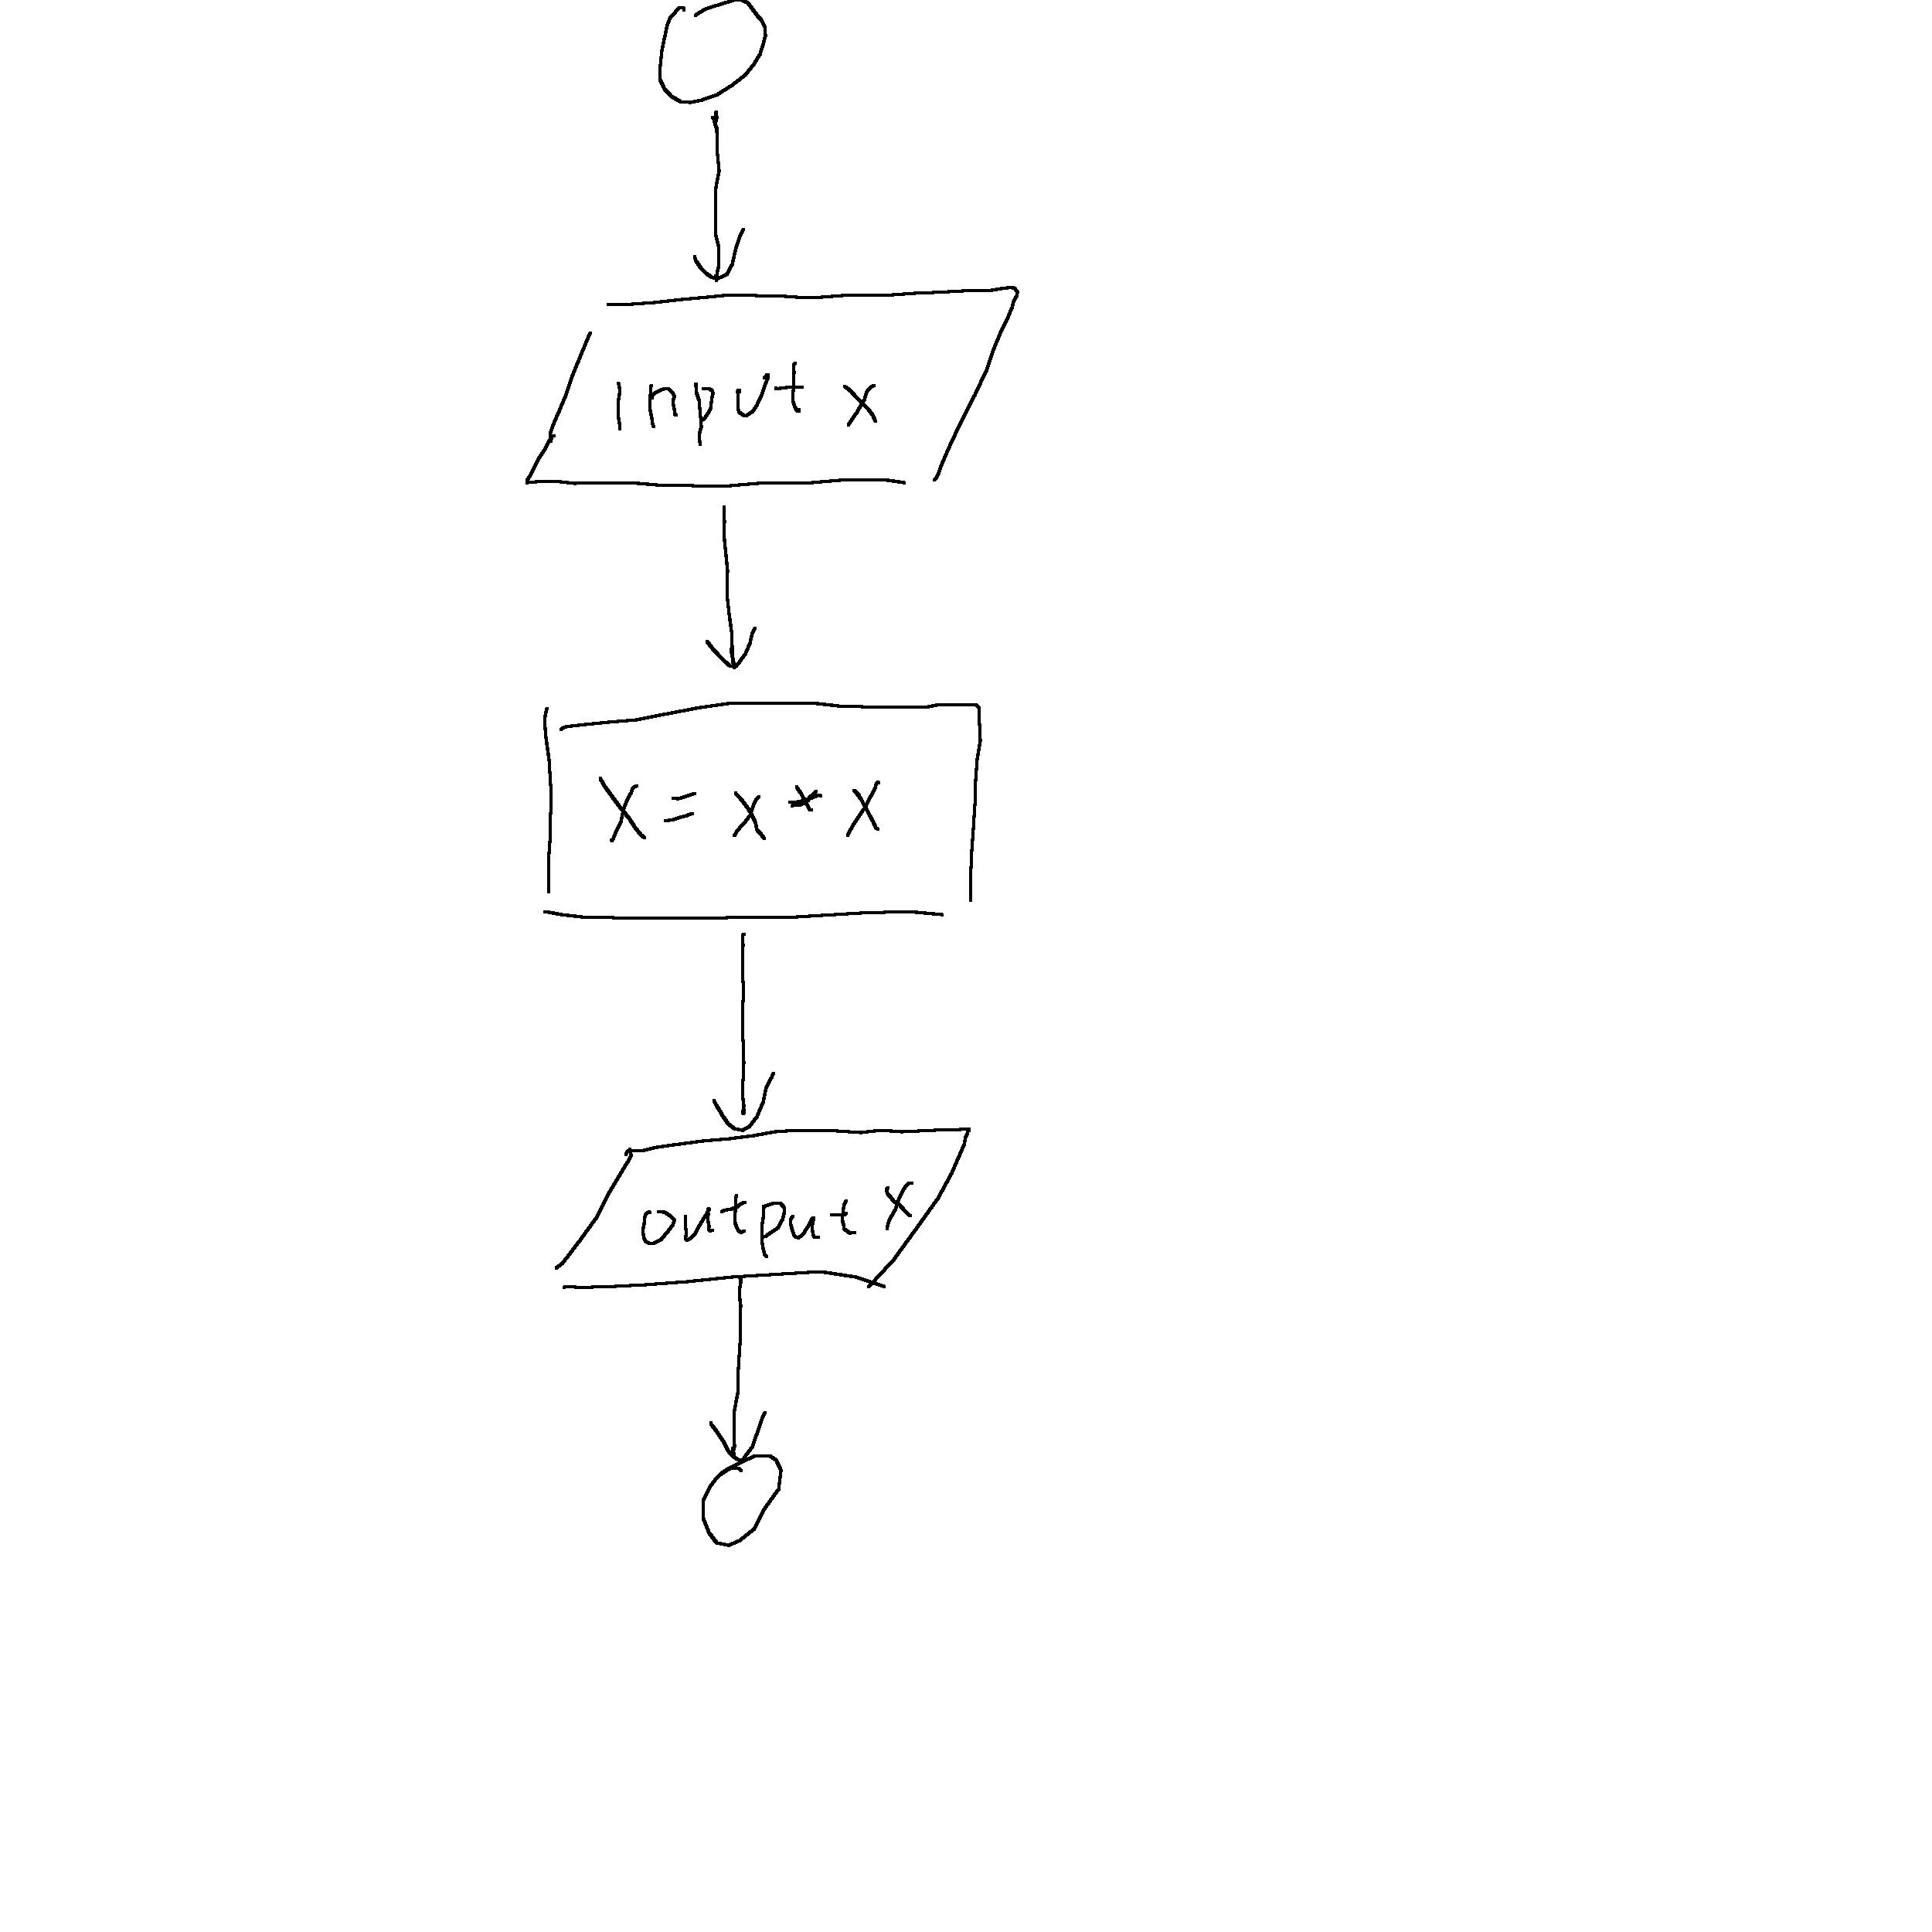 Input x
X = x * x
output x